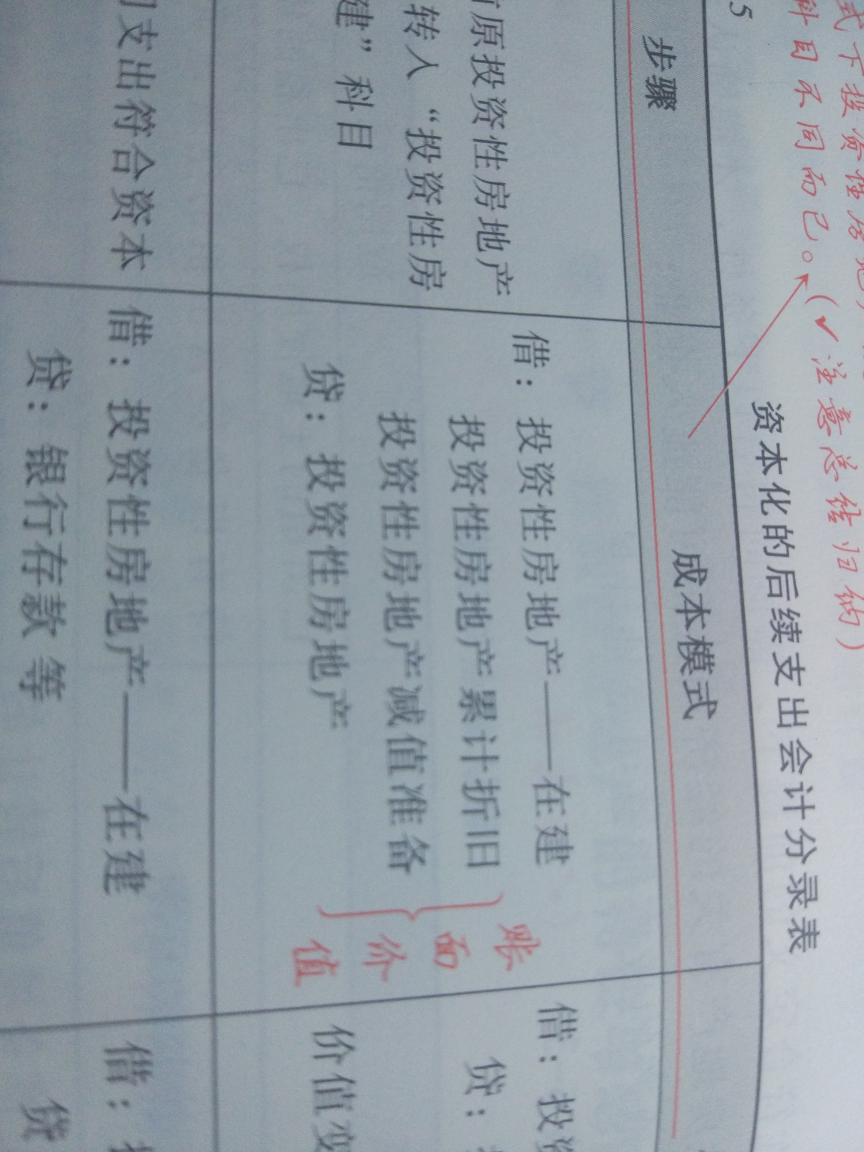 式下投资性房地
科目不同而已。(✓注意总结归纳)
5
资本化的后续支出会计分录表
步骤
成本模式
原投资性房地产
转入“投资性房
建”科目
借：投资性房地产——在建
投资性房地产累计折旧
投资性房地产减值准备
贷：投资性房地产
账面价值
借：投资
贷：
价值变
支出符合资本
借：投资性房地产——在建
贷：银行存款等
借：
贷